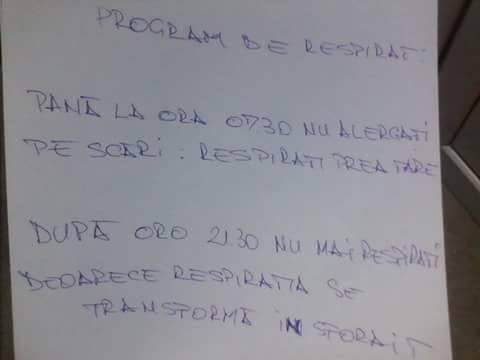 PROGRAM DE RESPIRAT:
PANĂ LA ORA 0730 NU ALERGATI
PE SCARI : RESPIRATI PREA TARE
DUPĂ ORO 21.30 NU MAI RESPIRATI
DEOARECE RESPIRATIA SE
TRANSFORMĂ IN SFORAIT